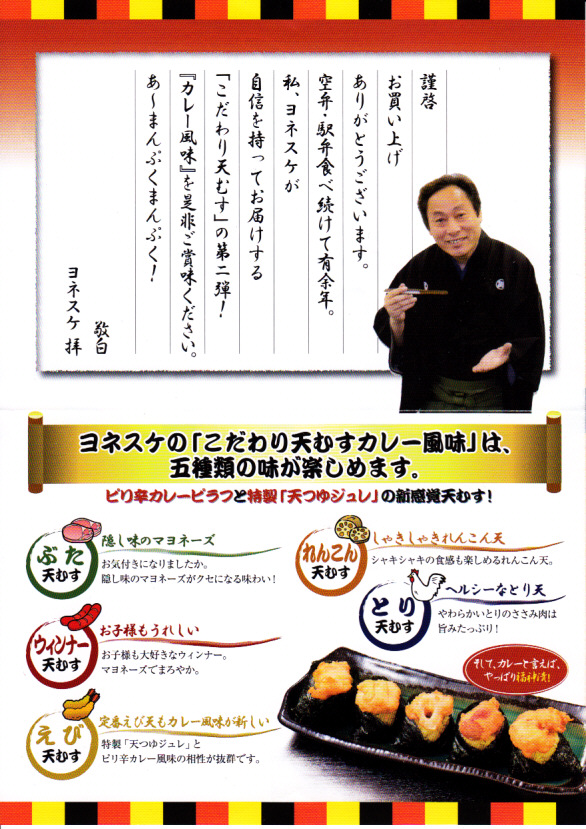 謹啓
お買い上げ
ありがとうございます。
空弁・駅弁食べ続けて有余年。
私、ヨネスケが
自信を持ってお届けする
「こだわり天むす」の第二弾！
『カレー風味』を是非ご賞味ください。
あ～まんぷくまんぷく！
敬白
ヨネスケ 拝
ヨネスケの「こだわり天むすカレー風味」は、
五種類の味が楽しめます。
ピリ辛カレーピラフと特製「天つゆジュレ」の新感覚天むす！
ぶた
天むす
隠し味のマヨネーズ
お気付きになりましたか。
隠し味のマヨネーズがクセになる味わい！
ウィンナー
天むす
お子様もうれしい
お子様も大好きなウィンナー。
マヨネーズでまろやか。
えび
天むす
定番えび天もカレー風味が新しい
特製「天つゆジュレ」と
ピリ辛カレー風味の相性が抜群です。
れんこん
天むす
しゃきしゃきれんこん天
シャキシャキの食感も楽しめるれんこん天。
とり
天むす
ヘルシーなとり天
やわらかいとりのささみ肉は
旨みたっぷり！
そして、カレーと言えば、
やっぱり福神漬！